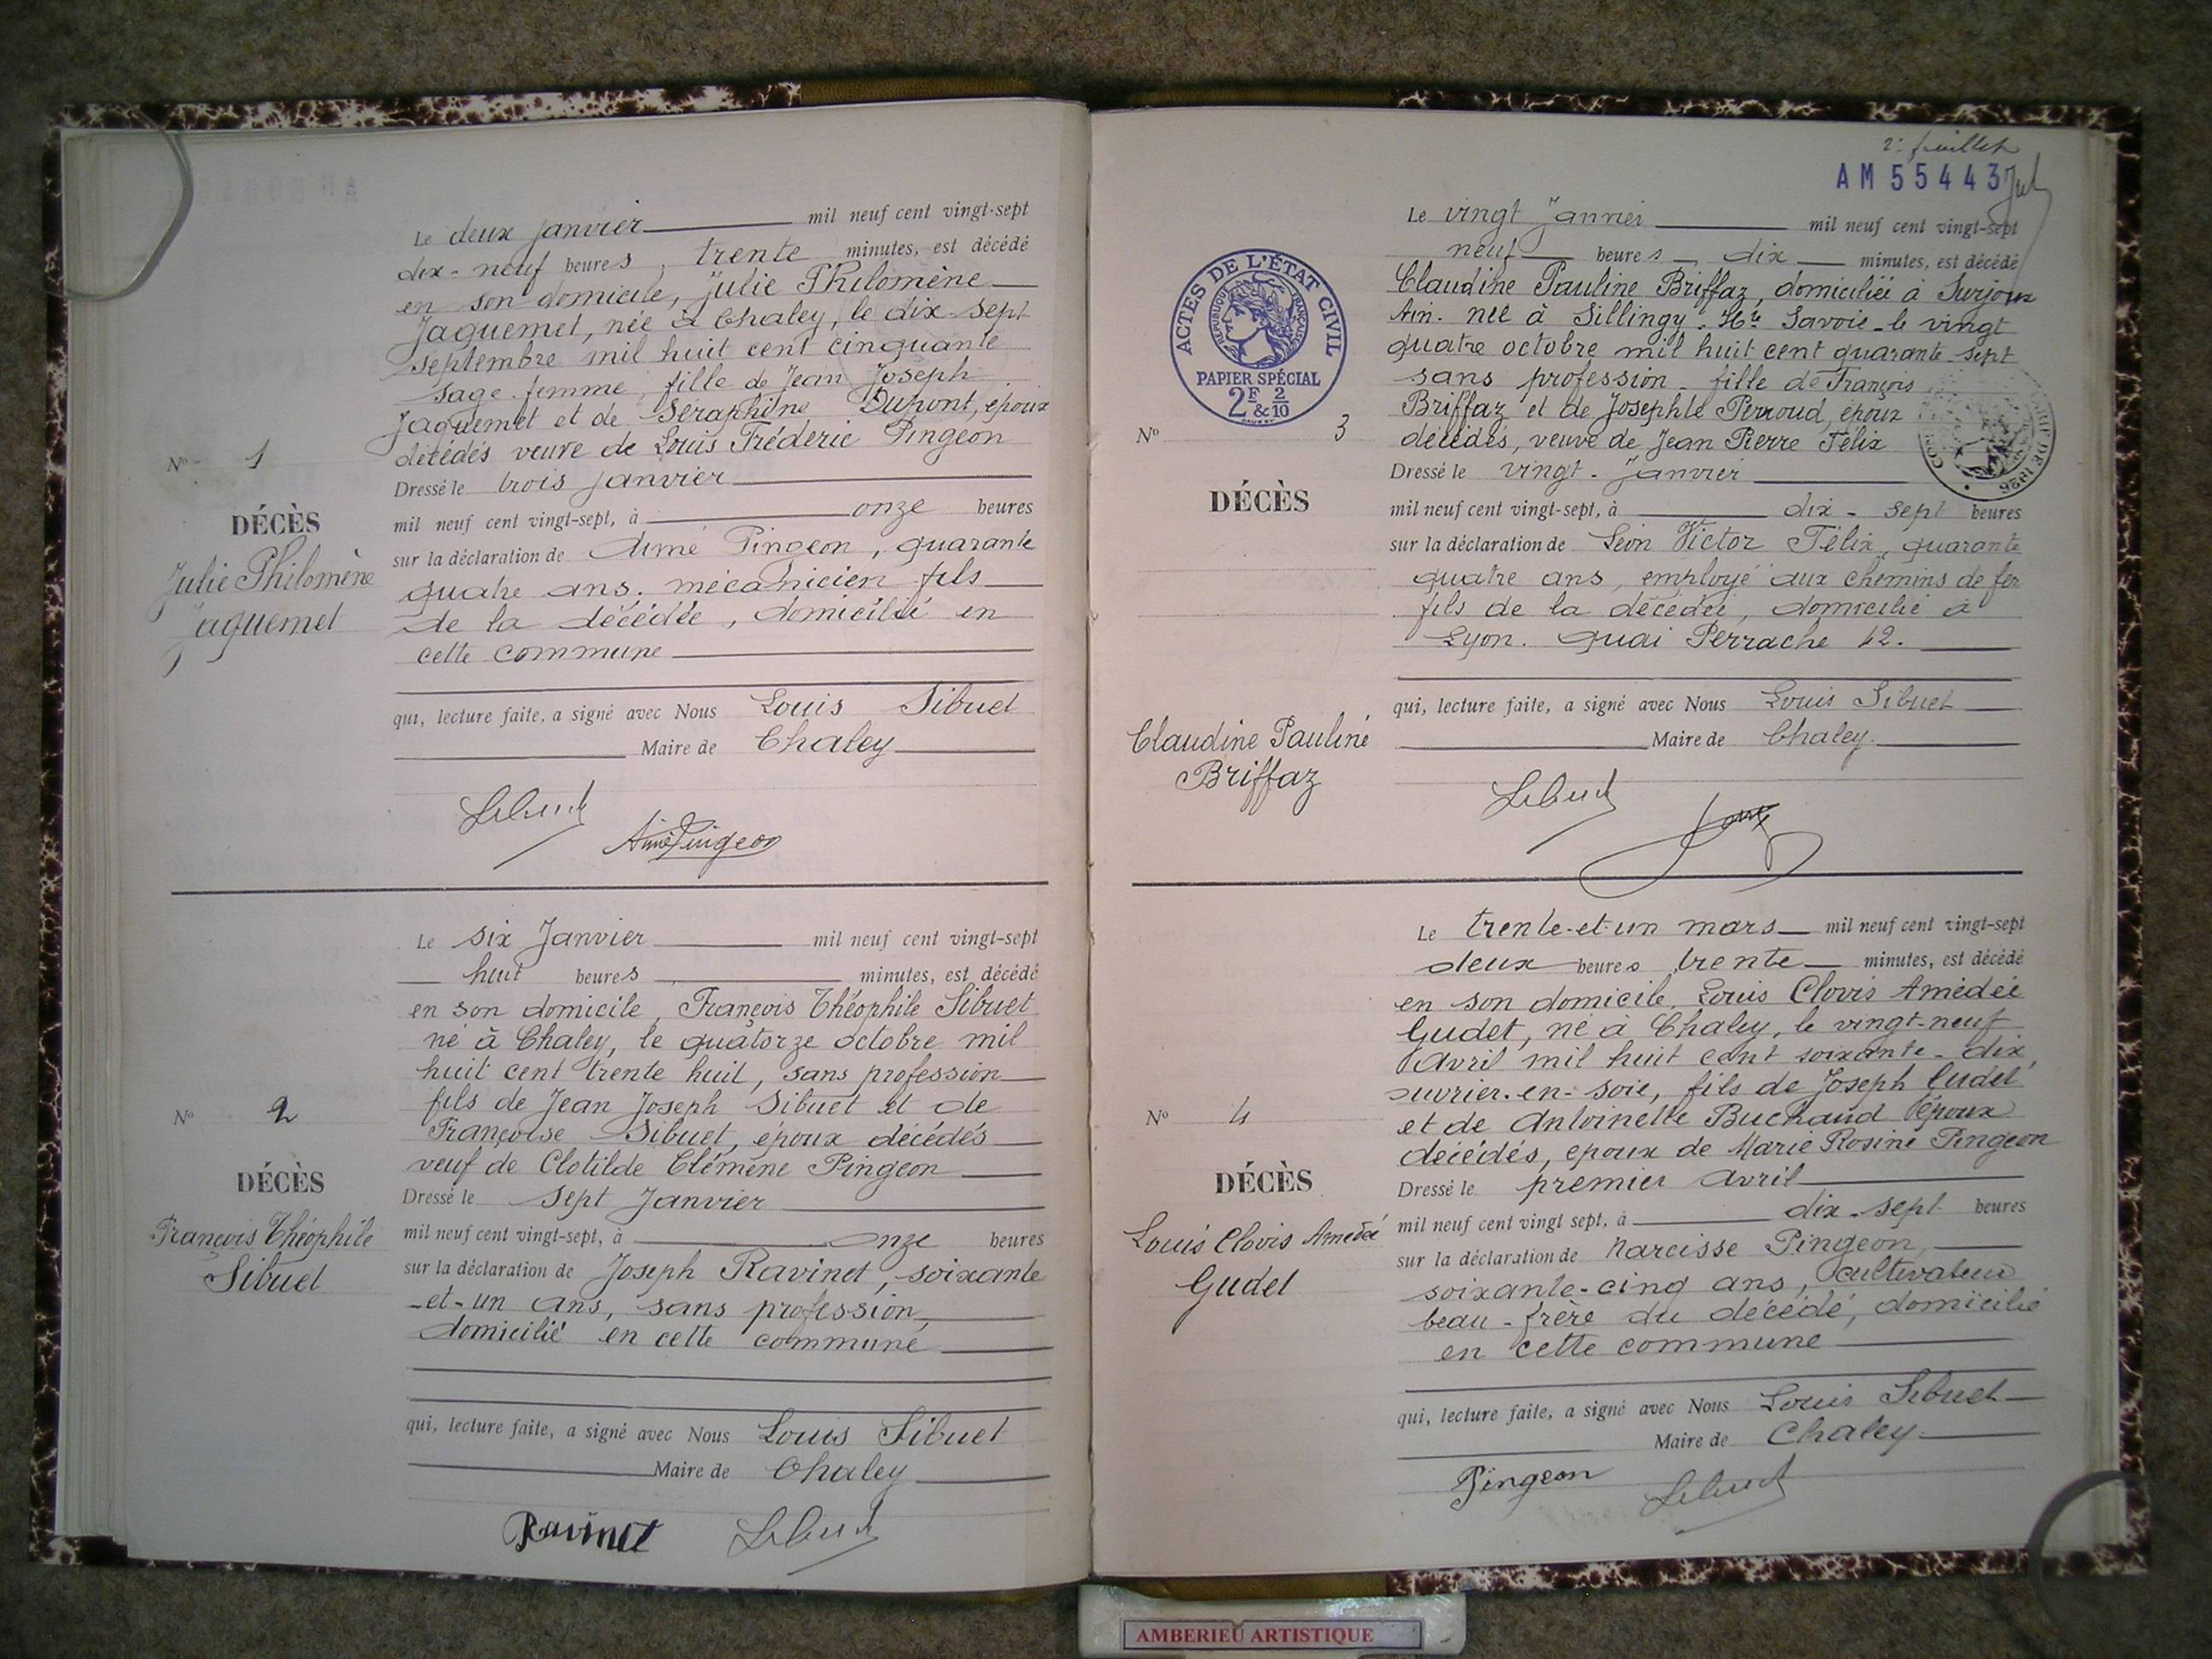 Le deux janvier mil neuf cent vingt-sept
dix-neuf heures, trente minutes, est décédé
en son domicile, Julie Philomène
Jaquemet, née à Chaley, le dix-sept
septembre mil huit cent cinquante
sage-femme, fille de Jean Joseph
Jaquemet et de Séraphine Dupont, époux
décédés veuve de Louis Fréderic Pingeon
Dressé le trois janvier
mil neuf cent vingt-sept, à onze heures
sur la déclaration de Aimé Pingeon, quarante
quatre ans. mécanicien fils
de la décédée, domicilié en
cette commune
qui, lecture faite, a signé avec Nous Louis Sibuet
Maire de Chaley
Sibuet
Aimé Pingeon
No 1
DÉCÈS
Julie Philomène
Jaquemet
Le six Janvier mil neuf cent vingt-sept
huit heures minutes, est décédé
en son domicile, François Théophile Sibuet
né à Chaley, le quatorze octobre mil
huit cent trente huit, sans profession
fils de Jean Joseph Sibuet et de
Françoise Sibuet, époux décédés
veuf de Clotilde Clémène Pingeon
Dressé le sept Janvier
mil neuf cent vingt-sept, à onze heures
sur la déclaration de Joseph Ravinet, soixante
-et-un ans, sans profession,
domicilié en cette commune
qui, lecture faite, a signé avec Nous Louis Sibuet
Maire de Chaley
Ravinet Sibuet
No 2
DÉCÈS
François Théophile
Sibuet
2e feuillet
AM 55443
ACTES DE L'ÉTAT CIVIL
RÉPUBLIQUE FRANÇAISE
PAPIER SPÉCIAL
2F & 2/10
Le vingt Janvier mil neuf cent vingt-sept
neuf heures dix minutes, est décédé
Claudine Pauline Briffaz, domiciliée à Surjoux
Ain. née à Sillingy. Hte Savoie le vingt
quatre octobre mil huit cent quarante sept
sans profession fille de François
Briffaz et de Josephte Perroud, époux
décédés, veuve de Jean Pierre Félix
Dressé le vingt Janvier
mil neuf cent vingt-sept, à dix-sept heures
sur la déclaration de Léon Victor Félix, quarante
quatre ans, employé aux chemins de fer
fils de la décédée, domicilié à
Lyon. quai Perrache 42.
qui, lecture faite, a signé avec Nous Louis Sibuet
Maire de Chaley.
Sibuet
No 3
DÉCÈS
Claudine Pauline
Briffaz
Le trente-et-un mars mil neuf cent vingt-sept
deux heures trente minutes, est décédé
en son domicile, Louis Clovis Amédée
Gudet, né à Chaley, le vingt-neuf
Avril mil huit cent soixante-dix,
ouvrier-en-soie, fils de Joseph Gudet
et de Antoinette Buchaud époux
décédés, epoux de Marie Rosine Pingeon
Dressé le premier Avril
mil neuf cent vingt sept, à dix-sept heures
sur la déclaration de Narcisse Pingeon,
soixante-cinq ans, cultivateur
beau-frère du décédé, domicilié
en cette commune
qui, lecture faite, a signé avec Nous Louis Sibuet
Maire de Chaley
Pingeon Sibuet
No 4
DÉCÈS
Louis Clovis Amédée
Gudet
AMBERIEU ARTISTIQUE